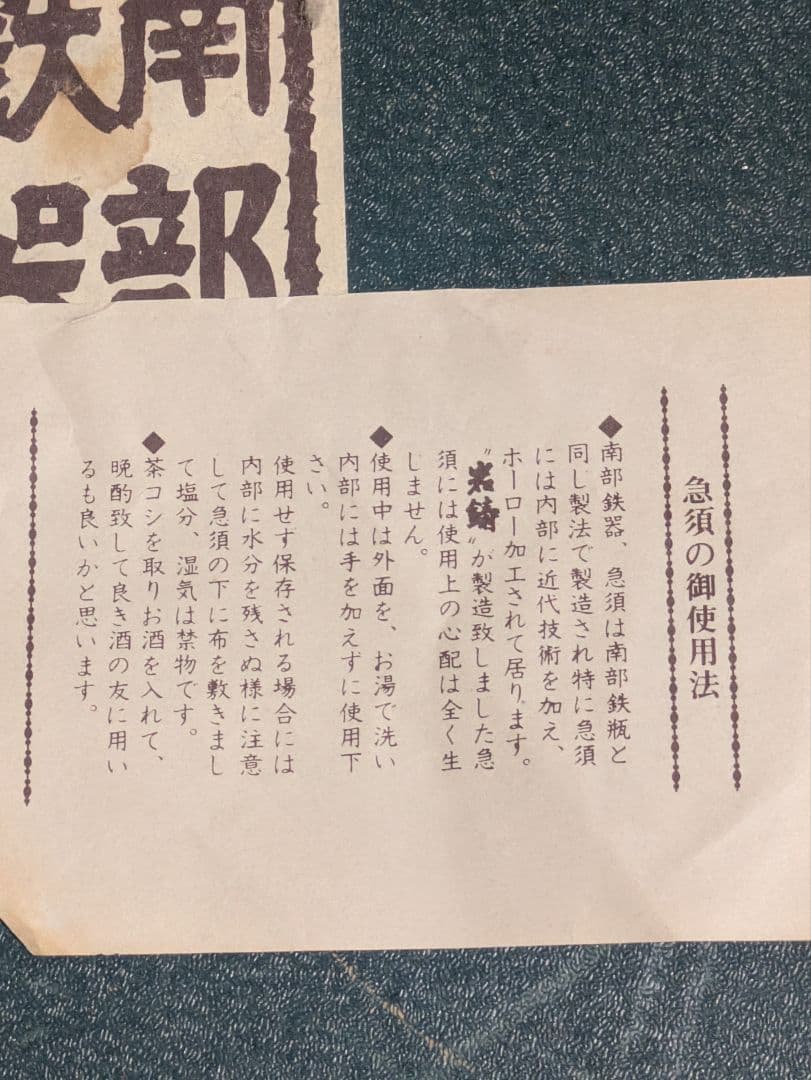 南部
鉄
急須の御使用法
◆南部鉄器、急須は南部鉄瓶と
同し製法で製造され特に急須
には内部に近代技術を加え、
ホーロー加工されて居ります。
〝岩鋳〟が製造致しました急
須には使用上の心配は全く生
しません。
◆使用中は外面を、お湯で洗い
内部には手を加えずに使用下
さい。
使用せず保存される場合には
内部に水分を残さぬ様に注意
して急須の下に布を敷きまし
て塩分、湿気は禁物です。
◆茶コシを取りお酒を入れて、
晩酌致して良き酒の友に用い
るも良いかと思います。